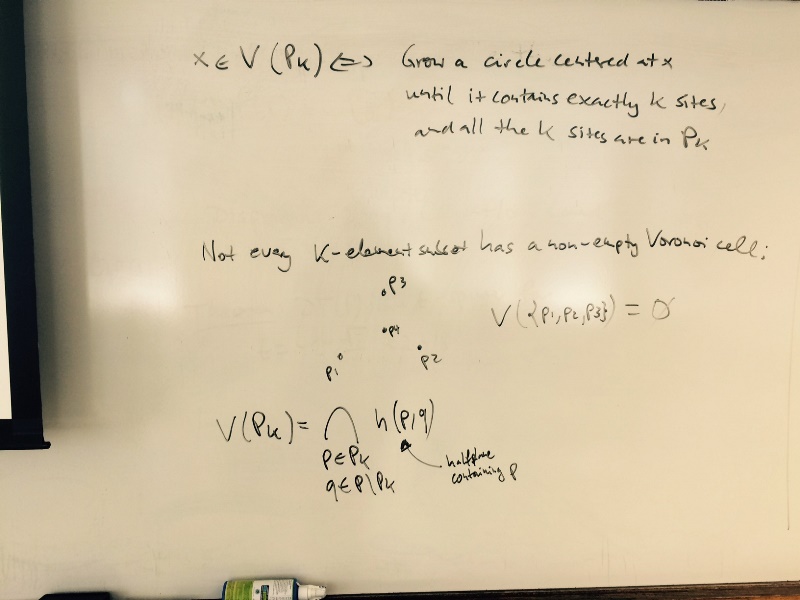 x ∈ V(Pk) ⇔ Grow a circle centered at x
until it contains exactly k sites,
and all the k sites are in Pk
Not every K-element subset has a non-empty Voronoi cell:
p3
p4
V({p1,p2,p3}) = ∅
p1
p2
V(Pk) = ⋂ h(p,q)
p∈Pk
q∈P\Pk
halfplane
containing p